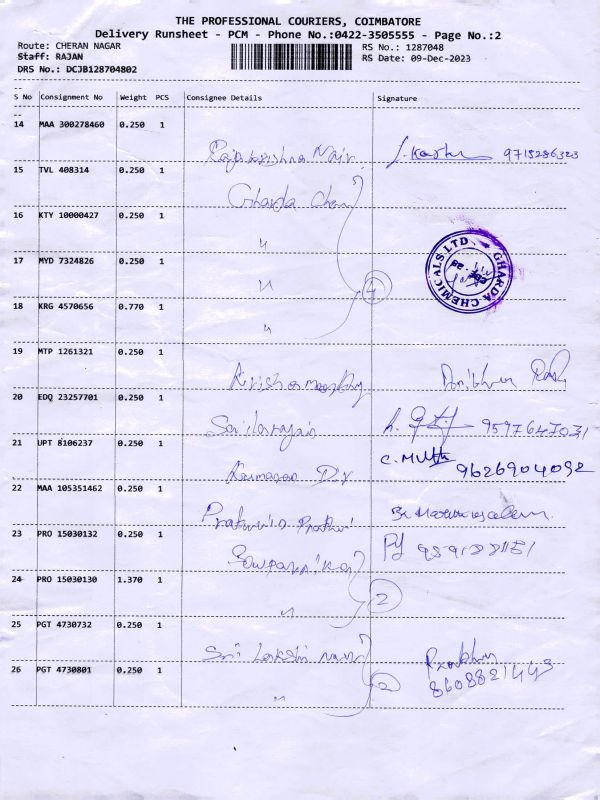 THE PROFESSIONAL COURIERS, COIMBATORE
Delivery Runsheet - PCM - Phone No.:0422-3505555 - Page No.:2
Route: CHERAN NAGAR RS No.: 1287048
Staff: RAJAN RS Date: 09-Dec-2023
DRS No.: DCJB128704802
S No Consignment No Weight PCS Consignee Details Signature
14 MAA 300278460 0.250 1
Nair 9715286323
15 TVL 408314 0.250 1
Gharda Chem
16 KTY 10000427 0.250 1
"
17 MYD 7324826 0.250 1
"
GHARDA CHEMICALS LTD
4
18 KRG 4570656 0.770 1
"
19 MTP 1261321 0.250 1
20 EDQ 23257701 0.250 1
9597647031
21 UPT 8106237 0.250 1
C. Muthu
9626904092
22 MAA 105351462 0.250 1
23 PRO 15030132 0.250 1
24 PRO 15030130 1.370 1
2
"
25 PGT 4730732 0.250 1
Sri
Prabhu
26 PGT 4730801 0.250 1
8608821443
2
"